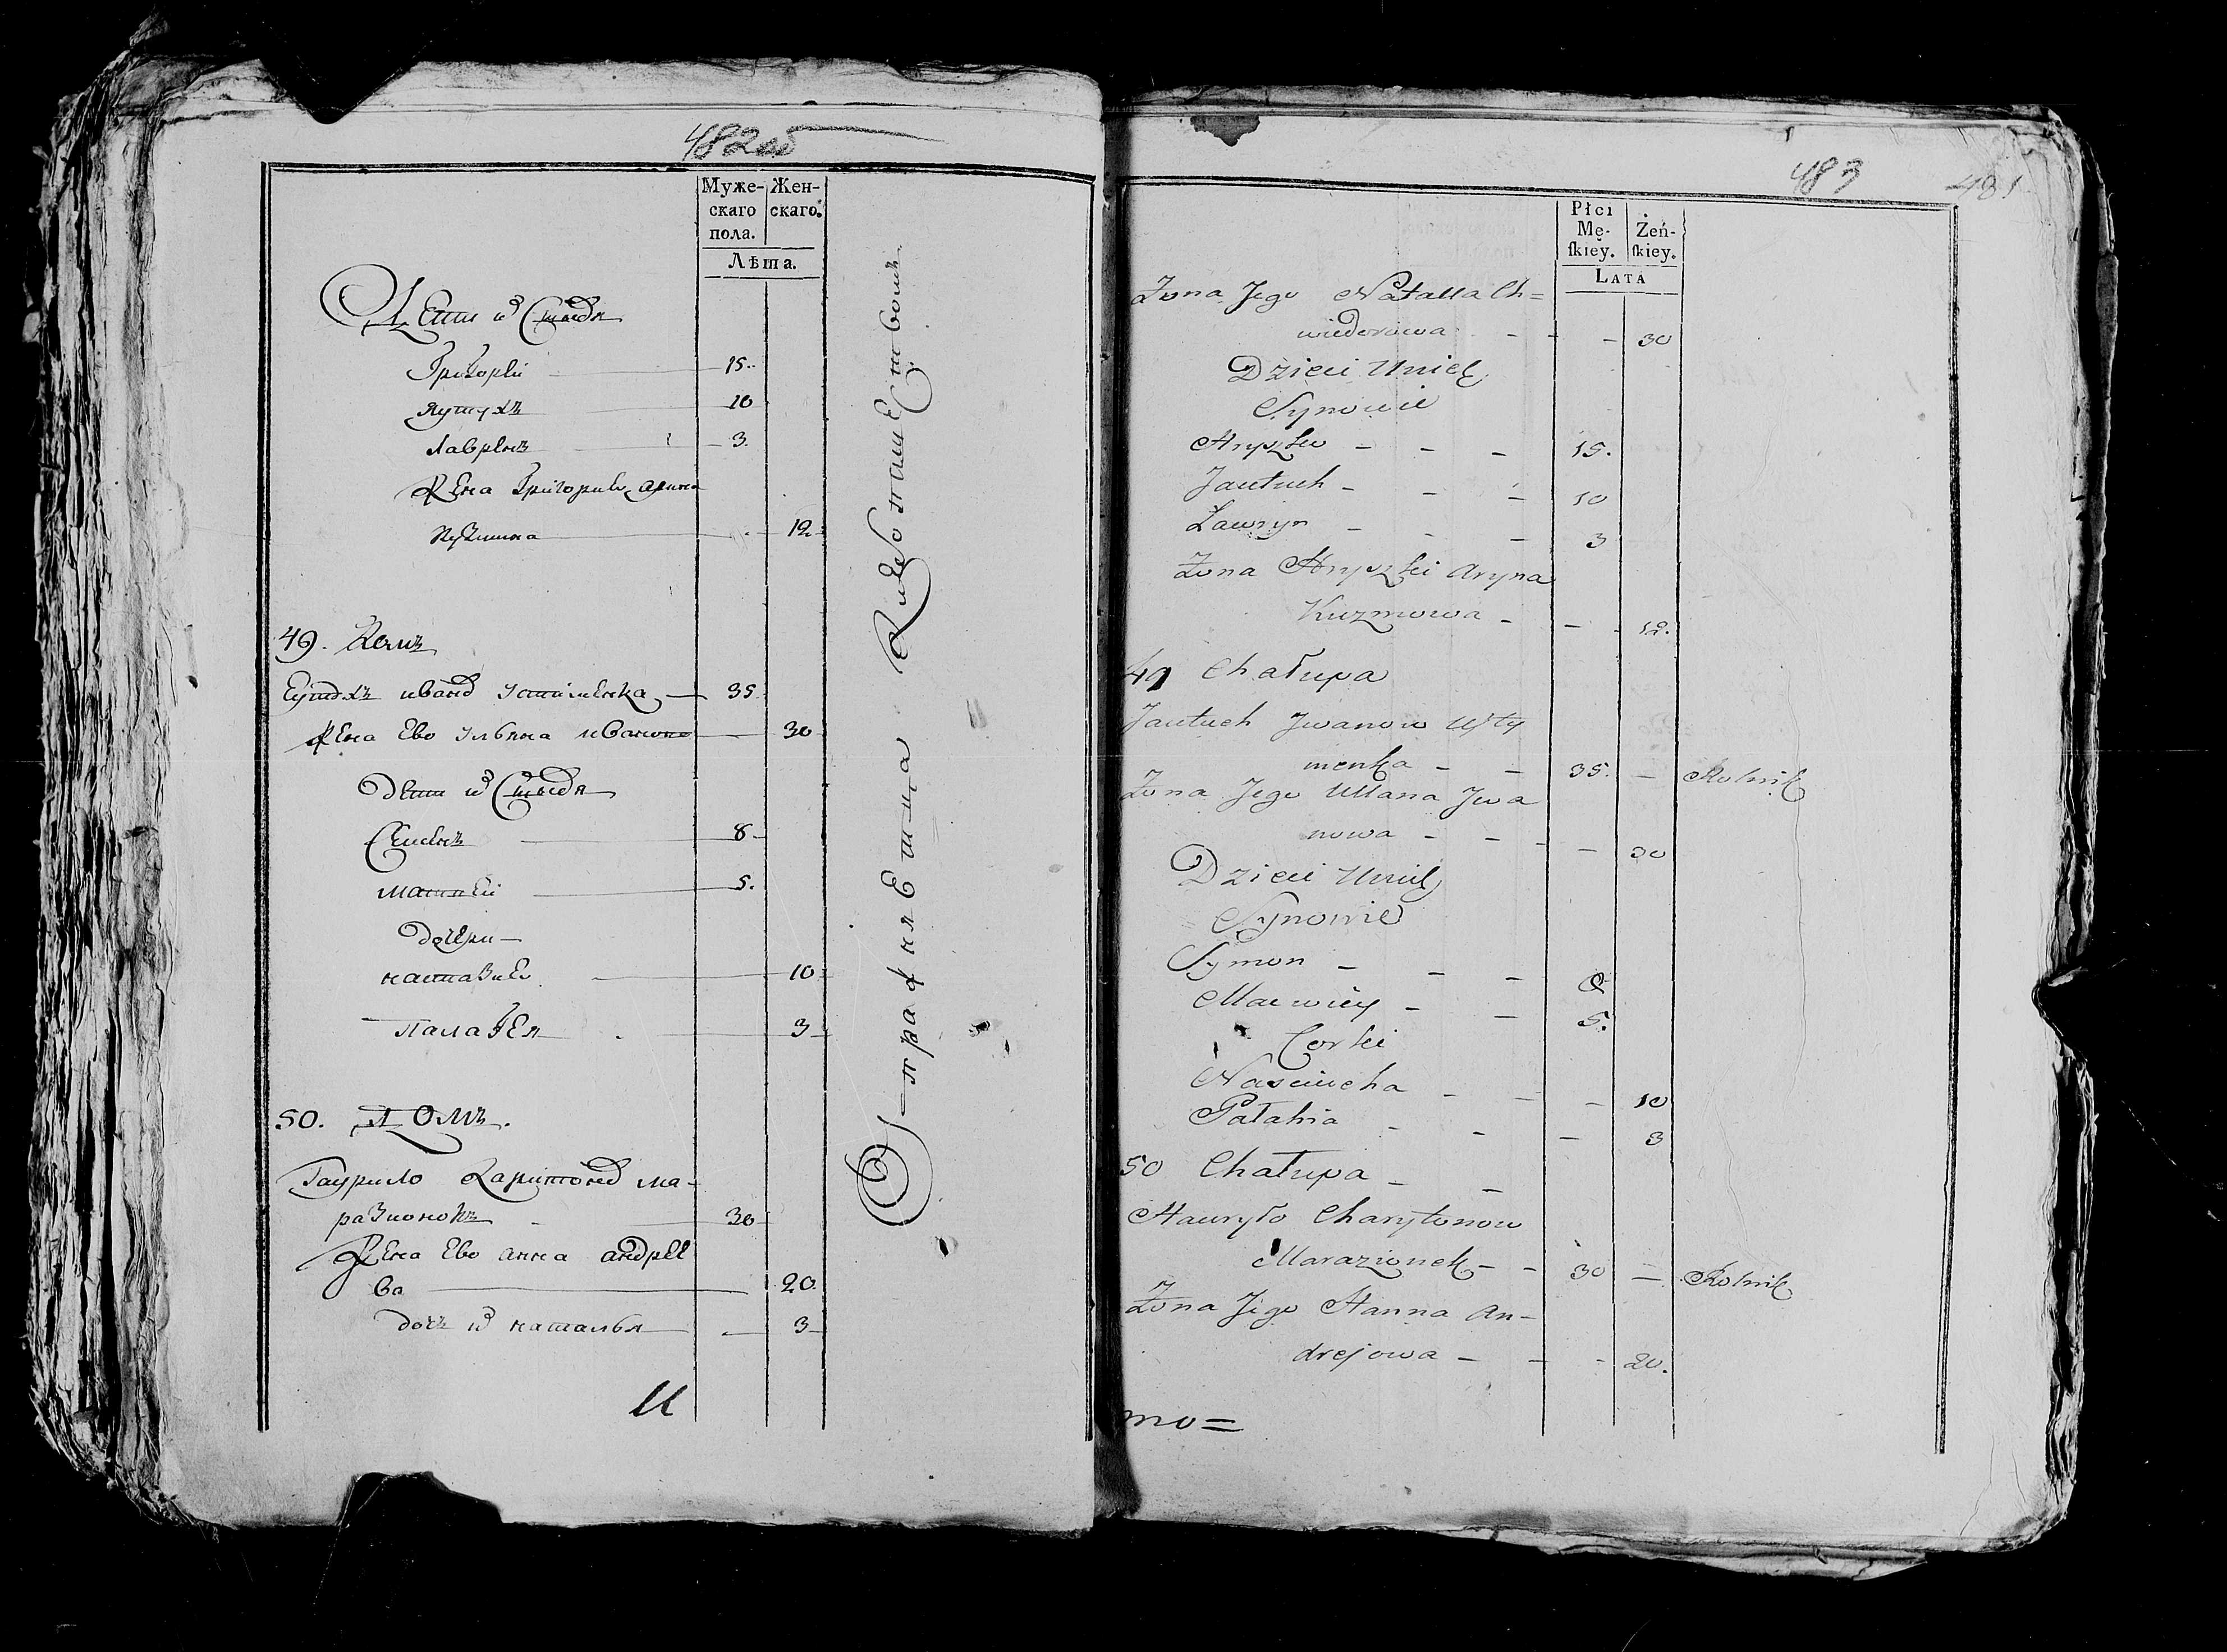 482 об
Муже- Жен-
скаго скаго.
пола.
Лѣта.
Дети и
Григорей 15.
Яутухъ 10
Лаврѣнъ 3.
Жена Арина
12
49. Домъ
Еутухъ Иванов Устименка 35.
Жена Ево Ульяна Иванова 30
Дети и
Семенъ 8
Матвей 5.
Дочери
10
Палагея 3
50. Домъ.
Гаурило Харитонов Ма-
разионокъ 30
Жена Ево Анна Андрее
ва 20.
дочь и Наталья 3
483 481
Płci
Mę- Żeń-
ſkiey. ſkiey.
LATA
Żona Jego Natalla Ch=
wiedorowa - - - 30
Dzieci Unich
Synowie
Hryszko - - - 15.
Jautuch - - - 10
Ławryn - - - 3
Żona Hryszki Aryna
Kuzmowa - - - 12.
49 Chałupa
Jautuch Jwanow Usty
menka - - 35. - Rolnik
Żona Jego Ullana Jwa
nowa - - - - 30
Dzieci Unich
Synowie
Symon - - - 8
Maćwiey - - 5.
Corki
Naściucha - - - 10
Pałahia - - - 3
50 Chałupa - -
Hauryło Charytonow
Marazionek - - 30 - Rolnik
Żona Jego Hanna An-
drejowa - - - 20.
mo=